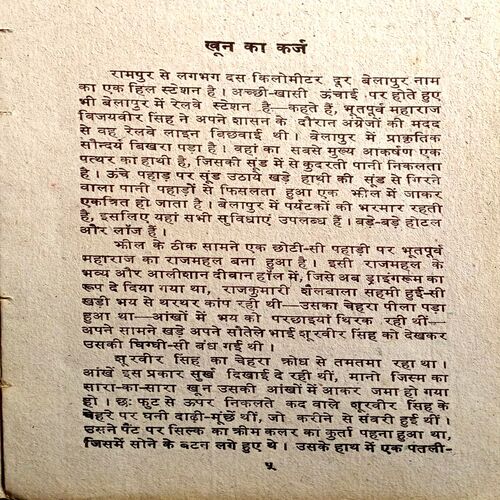 खून का कर्ज
रामपुर से लगभग दस किलोमीटर दूर बेलापुर नाम
का एक हिल स्टेशन है। अच्छी-खासी ऊंचाई पर होते हुए
भी बेलापुर में रेलवे स्टेशन है—कहते हैं, भूतपूर्व महाराज
विजयवीर सिंह ने अपने शासन के दौरान अंग्रेजों की मदद
से वह रेलवे लाइन बिछवाई थी। बेलापुर में प्राकृतिक
सौन्दर्य बिखरा पड़ा है। वहां का सबसे मुख्य आकर्षण एक
पत्थर का हाथी है, जिसकी सूंड में से कुदरती पानी निकलता
है। ऊंचे पहाड़ पर सूंड उठाये खड़े हाथी की सूंड से गिरने
वाला पानी पहाड़ों से फिसलता हुआ एक झील में जाकर
एकत्रित हो जाता है। बेलापुर में पर्यटकों की भरमार रहती
है, इसलिए यहां सभी सुविधाएं उपलब्ध हैं। बड़े-बड़े होटल
और लॉज हैं।
झील के ठीक सामने एक छोटी-सी पहाड़ी पर भूतपूर्व
महाराज का राजमहल बना हुआ है। इसी राजमहल के
भव्य और आलीशान दीवान हॉल में, जिसे अब ड्राइंगरूम का
रूप दे दिया गया था, राजकुमारी शैलबाला सहमी हुई-सी
खड़ी भय से थरथर कांप रही थी—उसका चेहरा पीला पड़ा
हुआ था—आंखों में भय की परछाइयां थिरक रही थीं—
अपने सामने खड़े अपने सौतेले भाई शूरवीर सिंह को देखकर
उसकी घिग्घी-सी बंध गई थी।
शूरवीर सिंह का चेहरा क्रोध से तमतमा रहा था।
आंखें इस प्रकार सुर्ख दिखाई दे रही थीं, मानो जिस्म का
सारा-का-सारा खून उसकी आंखों में आकर जमा हो गया
हो। छः फुट से ऊपर निकलते कद वाले शूरवीर सिंह के
चेहरे पर घनी दाढ़ी-मूंछें थीं, जो करीने से संवरी हुई थीं।
उसने पैंट पर सिल्क का क्रीम कलर का कुर्ता पहना हुआ था,
जिसमें सोने के बटन लगे हुए थे। उसके हाथ में एक पतली-
५